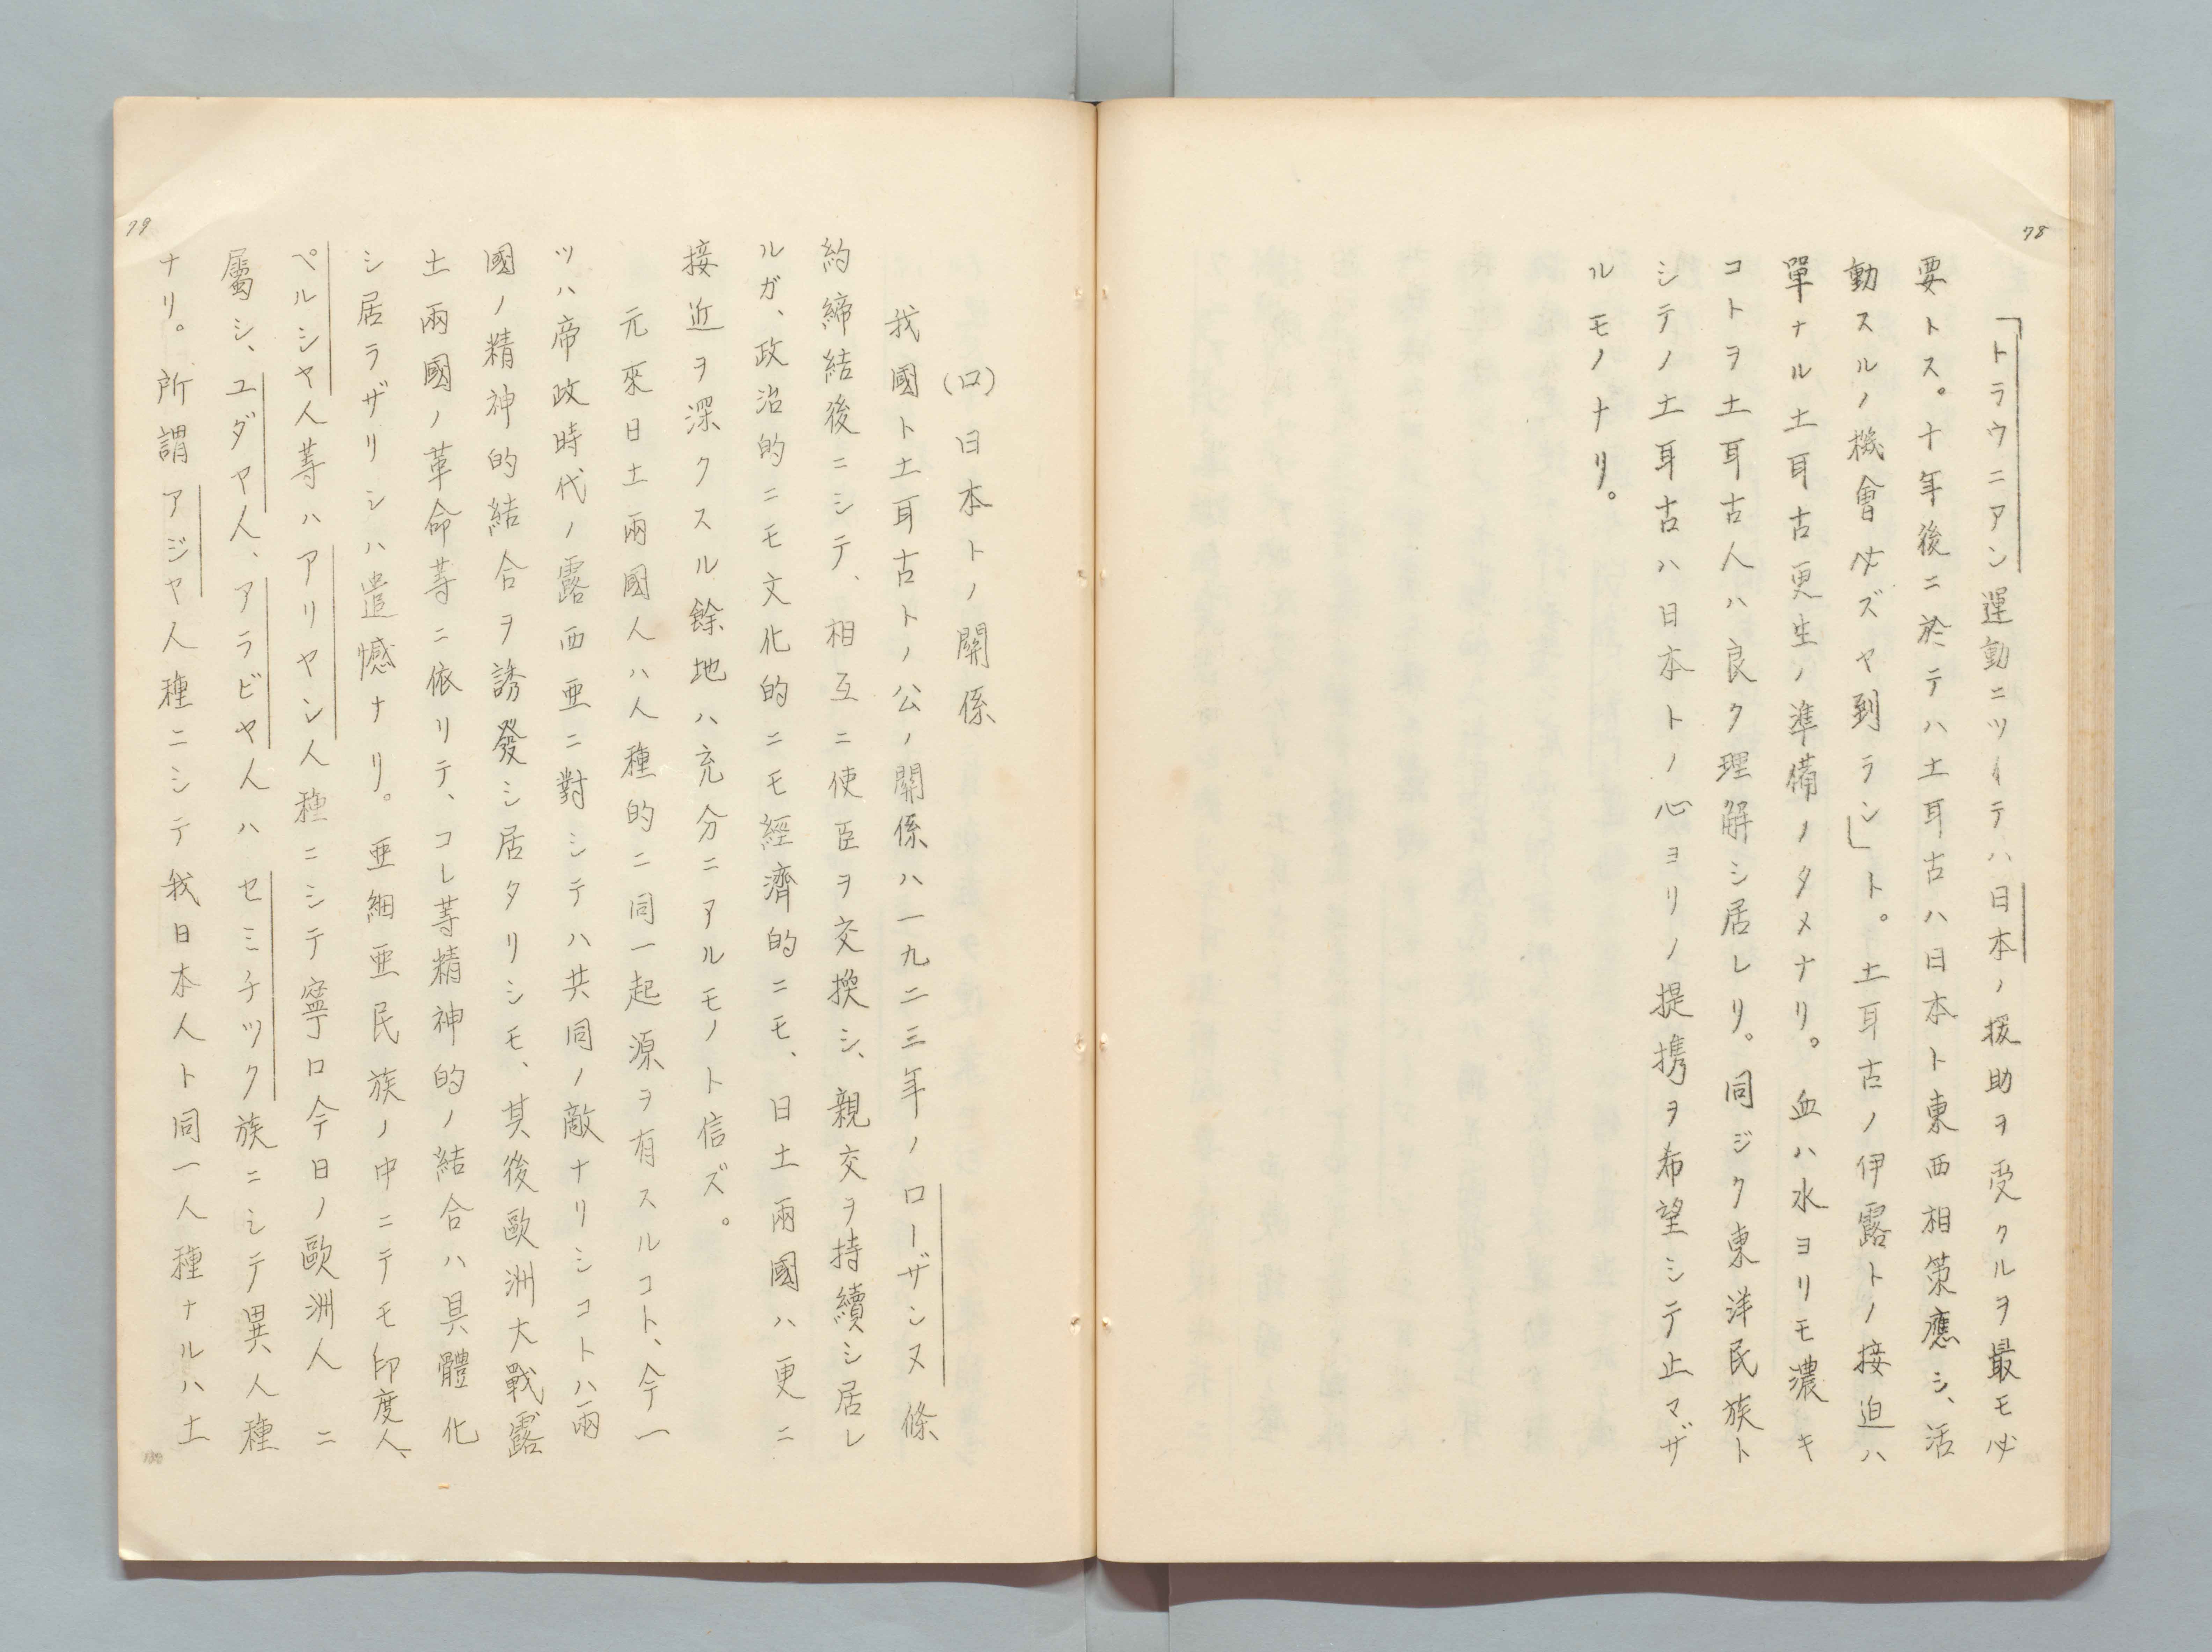 78
「トラウニアン運動ニツイテハ日本ノ援助ヲ受クルヲ最モ必
要トス。十年後ニ於テハ土耳古ハ日本ト東西相策應シ、活
動スルノ機會必ズヤ到ラン」ト。土耳古ノ伊露トノ接迫ハ
單ナル土耳古更生ノ準備ノタメナリ。血ハ水ヨリモ濃キ
コトヲ土耳古人ハ良ク理解シ居レリ。同ジク東洋民族ト
シテノ土耳古ハ日本トノ心ヨリノ提携ヲ希望シテ止マザ
ルモノナリ。
(ロ)日本トノ關係
我國ト土耳古トノ公ノ關係ハ一九二三年ノローザンヌ條
約締結後ニシテ、相互ニ使臣ヲ交換シ、親交ヲ持續シ居レ
ルガ、政治的ニモ文化的ニモ經濟的ニモ、日土兩國ハ更ニ
接近ヲ深クスル餘地ハ充分ニアルモノト信ズ。
元來日土兩國人ハ人種的ニ同一起源ヲ有スルコト、今一
ツハ帝政時代ノ露西亜ニ對シテハ共同ノ敵ナリシコトハ兩
國ノ精神的結合ヲ誘發シ居タリシモ、其後歐洲大戰露
土兩國ノ革命等ニ依リテ、コレ等精神的ノ結合ハ具體化
シ居ラザリシハ遺憾ナリ。亜細亜民族ノ中ニテモ印度人、
ペルシヤ人等ハアリヤン人種ニシテ寧ロ今日ノ歐洲人ニ
屬シ、ユダヤ人、アラビヤ人ハセミチツク族ニシテ異人種
ナリ。所謂アジヤ人種ニシテ我日本人ト同一人種ナルハ土
79